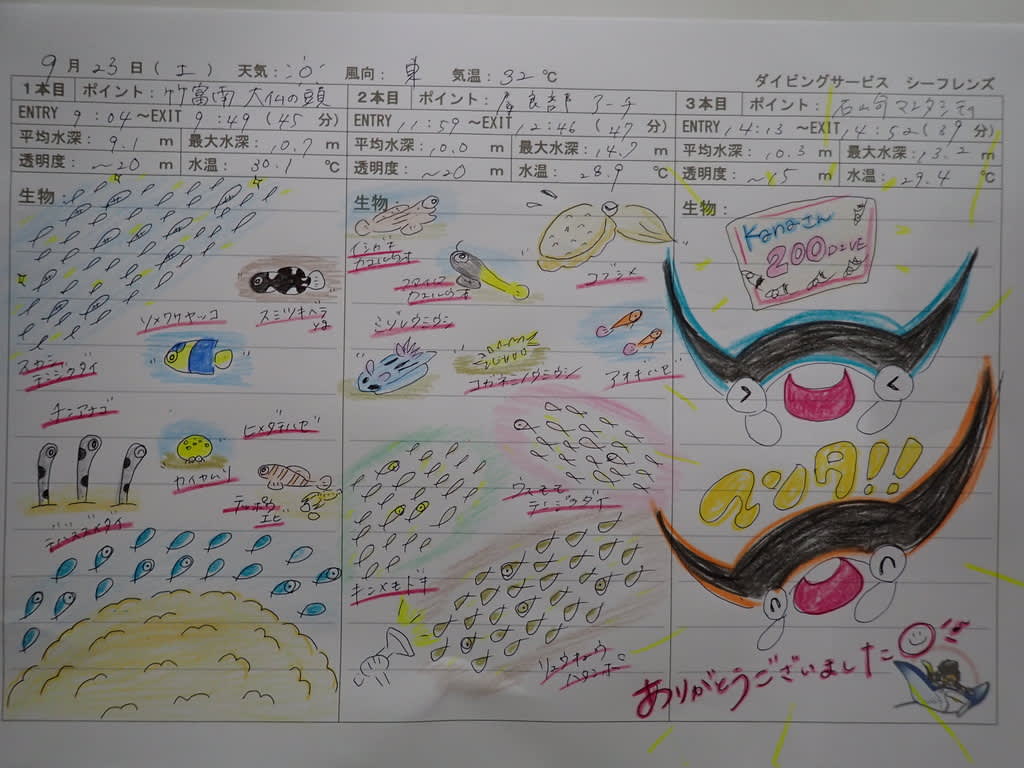 9月23日(土) 天気: 風向: 東 気温: 32℃
ダイビングサービス シーフレンズ
1本目 ポイント: 竹富南 大仏の頭
ENTRY 9:04~EXIT 9:49(45分)
平均水深: 9.1 m 最大水深: 10.7 m
透明度: ~20 m 水温: 30.1 ℃
生物:
スミツキベラ
yg
ソメワケヤッコ
スカシ
テンジクダイ
チンアナゴ
ヒメダテハゼ
カイカムリ
テッポウ
エビ
デバスズメダイ
2本目 ポイント: 屋良部 アーチ
ENTRY 11:59~EXIT 12:46(47分)
平均水深: 10.0 m 最大水深: 14.7 m
透明度: ~20 m 水温: 28.9 ℃
生物:
イシガキ
カエルウオ
コブシメ
フタイロ
カエルウオ
ミゾレウミウシ
コガネミノウミウシ
アオギハゼ
ウスモモ
テンジクダイ
キンメモドキ
リュウキュウ
ハタンポ
3本目 ポイント: 石崎 マンタシティ
ENTRY 14:13~EXIT 14:52(39分)
平均水深: 10.3 m 最大水深: 13.2 m
透明度: ~15 m 水温: 29.4 ℃
生物:
Kanaさん
200DIVE
マンタ!!
ありがとうございました